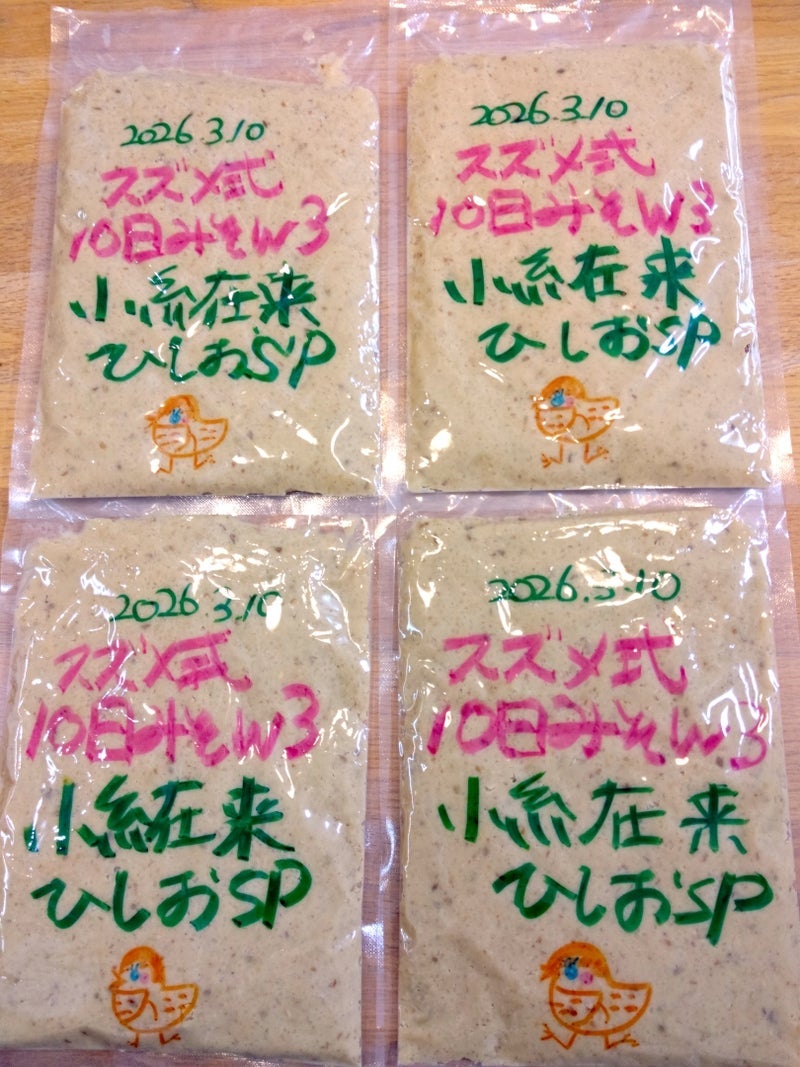 2026.3.10
スズメ式
10日みそW3
小糸在来
ひしおSP
2026.3.10
スズメ式
10日みそW3
小糸在来
ひしおSP
2026.3.10
スズメ式
10日みそW3
小糸在来
ひしおSP
2026.3.10
スズメ式
10日みそW3
小糸在来
ひしおSP